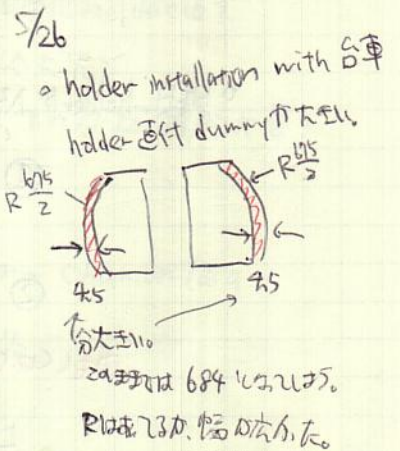 5/26
○ holder installation with 台車
holder 直付 dummy が大きい。
R 675/2
R 675/2
4.5
4.5
分大きい。
このままでは 684 になってしまう。
Rは出てるが、幅が広かった。